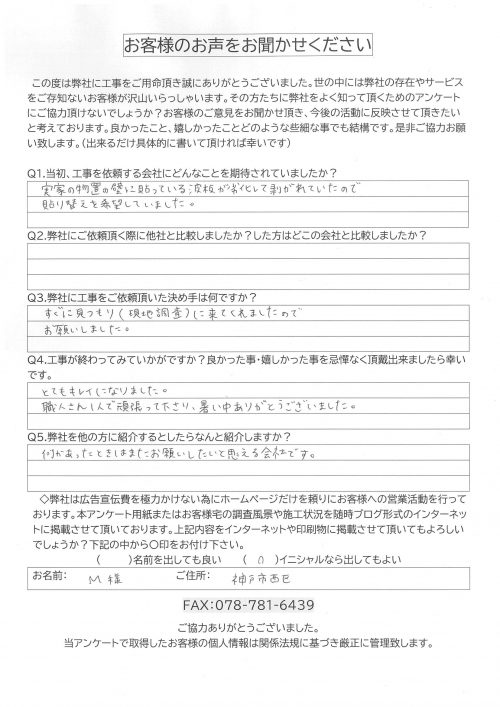 お客様のお声をお聞かせください
この度は弊社に工事をご用命頂き誠にありがとうございました。世の中には弊社の存在やサービス
をご存知ないお客様が沢山いらっしゃいます。その方たちに弊社をよく知って頂くためのアンケート
にご協力頂けないでしょうか？お客様のご意見をお聞かせ頂き、今後の活動に反映させて頂きたい
と考えております。良かったこと、嬉しかったことどのような些細な事でも結構です。是非ご協力お願
い致します。（出来るだけ具体的に書いて頂ければ幸いです）
Q1.当初、工事を依頼する会社にどんなことを期待されていましたか？
実家の物置の壁に貼っている波板が劣化して剥がれていたので
貼り替えを希望していました。
Q2.弊社にご依頼頂く際に他社と比較しましたか？した方はどこの会社と比較しましたか？
Q3.弊社に工事をご依頼頂いた決め手は何ですか？
すぐに見つもり（現地調査）に来てくれましたので
お願いしました。
Q4.工事が終わってみていかがですか？良かった事・嬉しかった事を忌憚なく頂戴出来ましたら幸い
です。
とてもキレイになりました。
職人さん1人で頑張って下さり、暑い中ありがとうございました。
Q5.弊社を他の方に紹介するとしたらなんと紹介しますか？
何かあったときはまたお願いしたいと思える会社です。
◇弊社は広告宣伝費を極力かけない為にホームページだけを頼りにお客様への営業活動を行って
おります。本アンケート用紙またはお客様宅の調査風景や施工状況を随時ブログ形式のインターネッ
トに掲載させて頂いております。上記内容をインターネットや印刷物に掲載させて頂いてもよろしい
でしょうか？下記の中から〇印をお付け下さい。
（　　）名前を出しても良い　（　〇　）イニシャルなら出してもよい
お名前：　M 様　ご住所：　神戸市西区
FAX：078-781-6439
ご協力ありがとうございました。
当アンケートで取得したお客様の個人情報は関係法規に基づき厳正に管理致します。